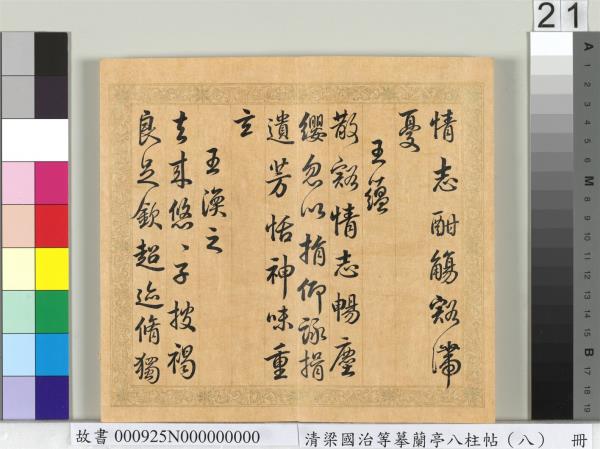 21
情志酣觴豁滯
憂
王蘊
散豁情志暢塵
纓忽以捐仰詠揖
遺芳恬神味重
玄
王渙之
去來悠〻子披褐
良足欽超迹脩獨
A 1 2 3 4 5 6 M 8 9 10 11 12 13 14 15 B 17 18 19
故書 000925N000000000
清梁國治等摹蘭亭八柱帖（八） 冊